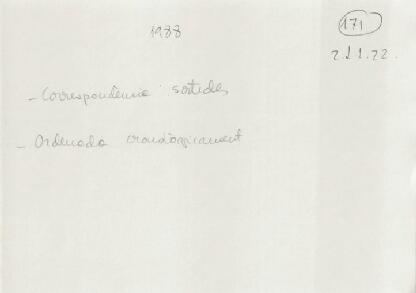 1988
171
2.1.1.22.
- Correspondència sortides
- Ordenada cronològicament